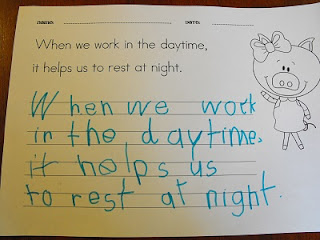 NAME: DATE:
When we work in the daytime,
it helps us to rest at night.
When we work
in the daytime,
it helps us
to rest at night.